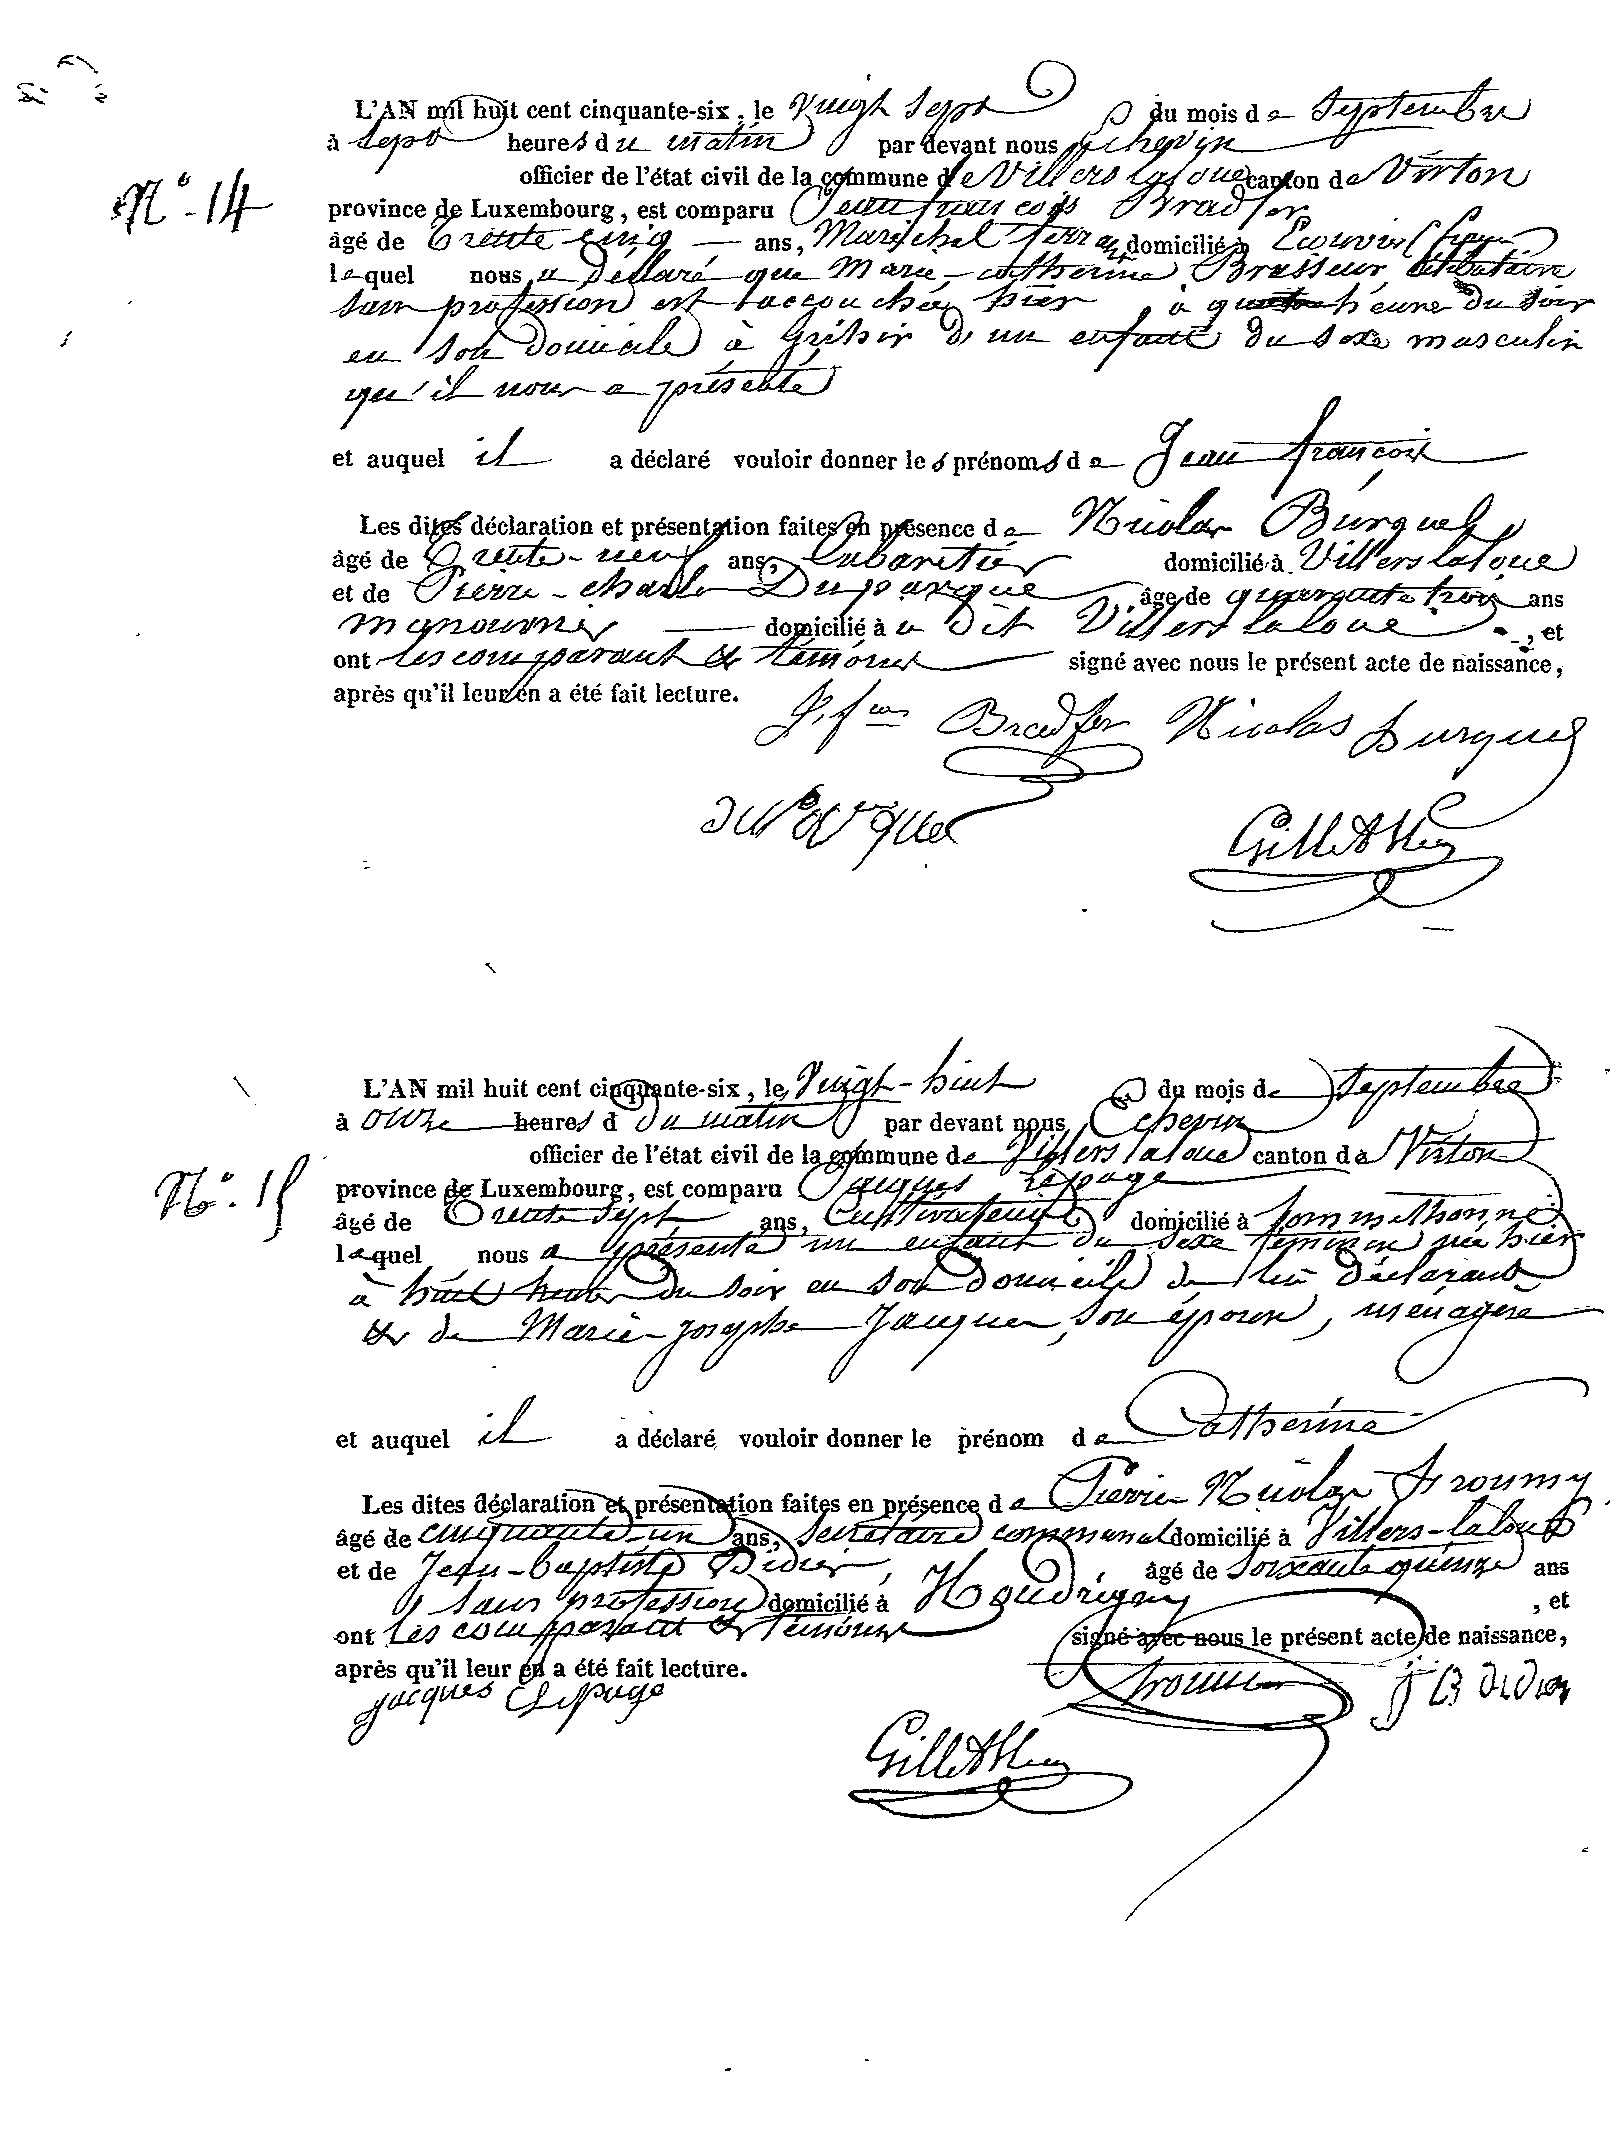 L'AN mil huit cent cinquante-six, le vingt sept du mois de Septembre
à sept heures du matin par devant nous Echevin
officier de l'état civil de la commune de Villers laloue canton de Virton
N° 14
province de Luxembourg, est comparu Jean françois Bradfer
âgé de trente cinq ans, Maréchal ferran domicilié à Ecouvier
lequel nous a déclaré que Marie-catherine Brasseur célibataire
sans profession est accouchée hier à quatre heures du soir
en son domicile à Gribir d'un enfant du sexe masculin
qu'il nous a présenté
et auquel il a déclaré vouloir donner les prénoms de Jean françois
Les dites déclaration et présentation faites en présence de Nicolas Burquel
âgé de trente-neuf ans, Cabaretier domicilié à Villers laloue
et de Pierre-charle Duparque âge de quarante trois ans
manouvrier domicilié à a dit Villers laloue, et
ont les comparant et témoins signé avec nous le présent acte de naissance,
après qu'il leur en a été fait lecture.
J. f cois Bradfer Nicolas Burquel
duparque
L'AN mil huit cent cinquante-six, le Vingt-huit du mois de Septembre
à onze heures d du matin par devant nous Echevin
officier de l'état civil de la commune de Villers laloue canton de Virton
N° 15
province de Luxembourg, est comparu Jacques Lepage
âgé de trente sept ans, Cultivateur domicilié à Sommethonne
lequel nous a présenté un enfant du sexe féminin née hier
à huit heures du soir en son domicile de lui déclarant
et de Marie-Josephe Jacques, son épouse, ménagère
et auquel il a déclaré vouloir donner le prénom de Catherine
Les dites déclaration et présentation faites en présence de Pierre Nicolas
âgé de cinquante-un ans, Secrétaire communal domicilié à Villers-laloue
et de Jean-baptiste Didier, âgé de soixante quinze ans
sans profession domicilié à Houdrigny, et
ont les comparant et témoins signé avec nous le présent acte de naissance,
après qu'il leur en a été fait lecture.
jacques Lepage J B Didier